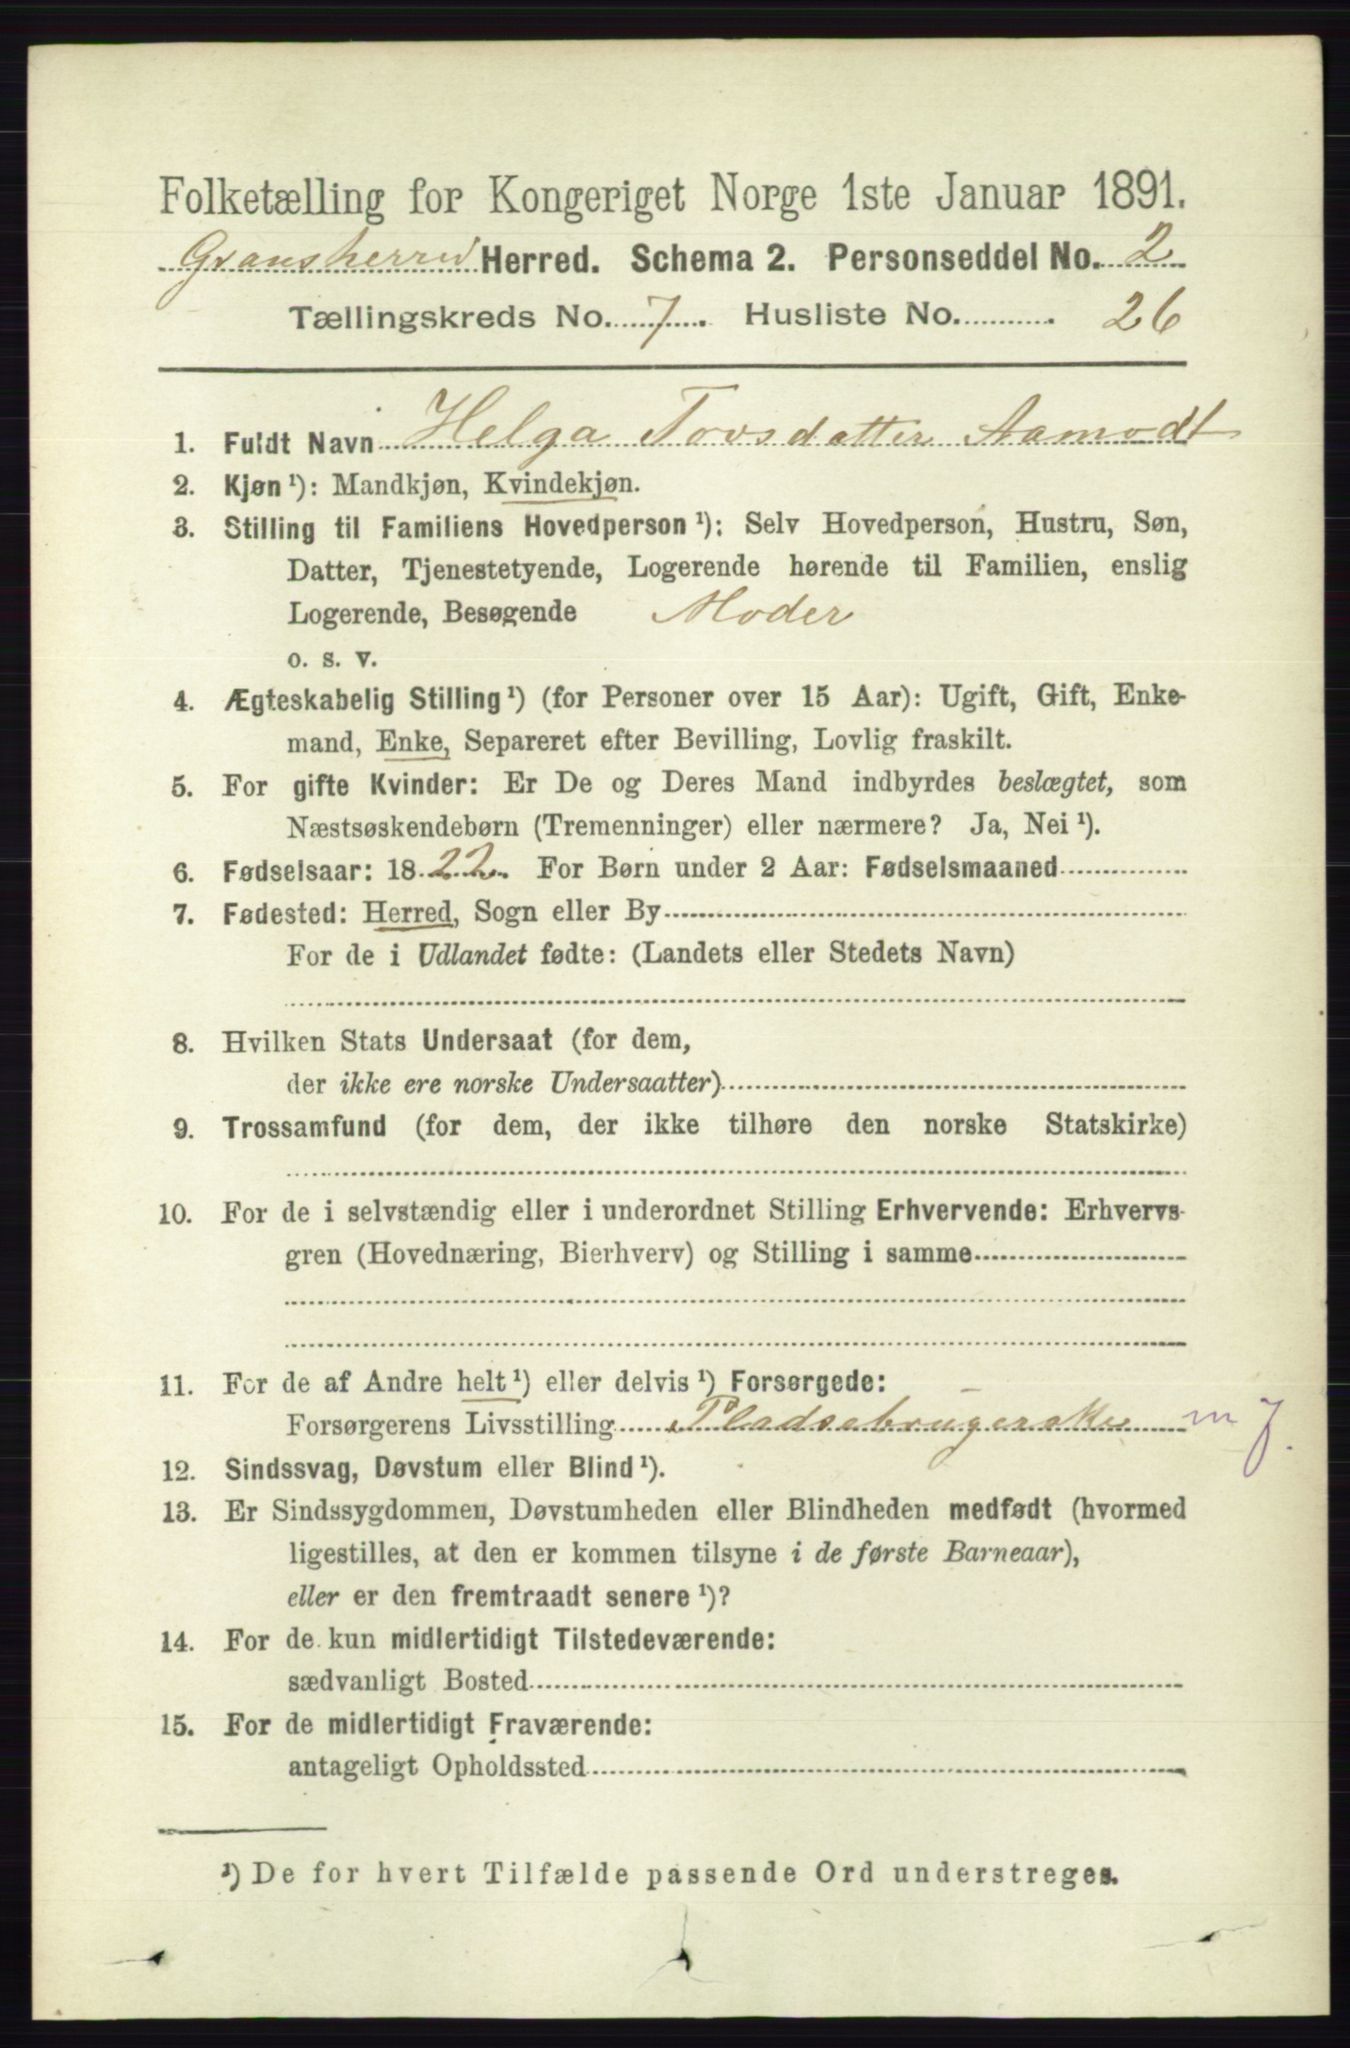 Folketælling for Kongeriget Norge 1ste Januar 1891.
Gransherred Herred. Schema 2. Personseddel No. 2
Tællingskreds No. 7. Husliste No. 26
1. Fuldt Navn Helga Tovsdatter Aamodt
2. Kjøn ¹): Mandkjøn, Kvindekjøn.
3. Stilling til Familiens Hovedperson ¹): Selv Hovedperson, Hustru, Søn,
Datter, Tjenestetyende, Logerende hørende til Familien, enslig
Logerende, Besøgende Moder
o. s. v.
4. Ægteskabelig Stilling ¹) (for Personer over 15 Aar): Ugift, Gift, Enke-
mand, Enke, Separeret efter Bevilling, Lovlig fraskilt.
5. For gifte Kvinder: Er De og Deres Mand indbyrdes beslægtet, som
Næstsøskendebørn (Tremenninger) eller nærmere? Ja, Nei ¹).
6. Fødselsaar: 1822. For Børn under 2 Aar: Fødselsmaaned
7. Fødested: Herred, Sogn eller By
For de i Udlandet fødte: (Landets eller Stedets Navn)
8. Hvilken Stats Undersaat (for dem,
der ikke ere norske Undersaatter)
9. Trossamfund (for dem, der ikke tilhøre den norske Statskirke)
10. For de i selvstændig eller i underordnet Stilling Erhvervende: Erhvervs-
gren (Hovednæring, Bierhverv) og Stilling i samme
11. For de af Andre helt ¹) eller delvis ¹) Forsørgede:
Forsørgerens Livsstilling Pladsebrugerske m J.
12. Sindssvag, Døvstum eller Blind ¹).
13. Er Sindssygdommen, Døvstumheden eller Blindheden medfødt (hvormed
ligestilles, at den er kommen tilsyne i de første Barneaar),
eller er den fremtraadt senere ¹)?
14. For de kun midlertidigt Tilstedeværende:
sædvanligt Bosted
15. For de midlertidigt Fraværende:
antageligt Opholdssted
¹) De for hvert Tilfælde passende Ord understreges.